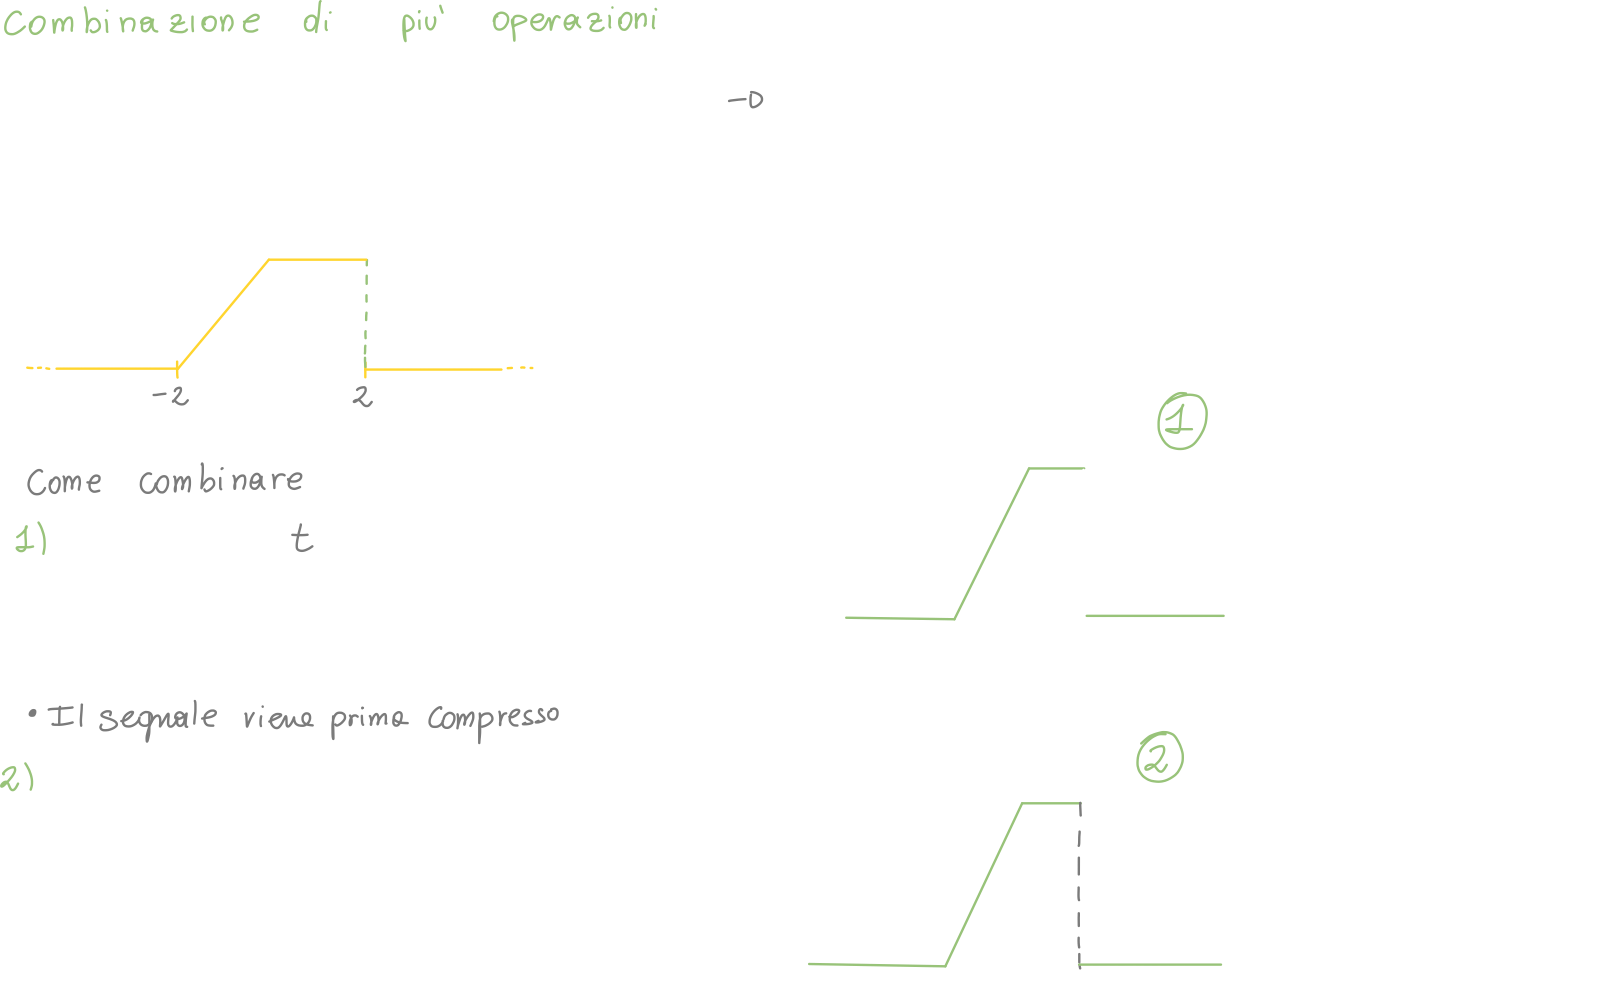 Combinazione di più operazioni
-2 2
Come combinare
1) t
1
• Il segnale viene prima compresso
2)
2